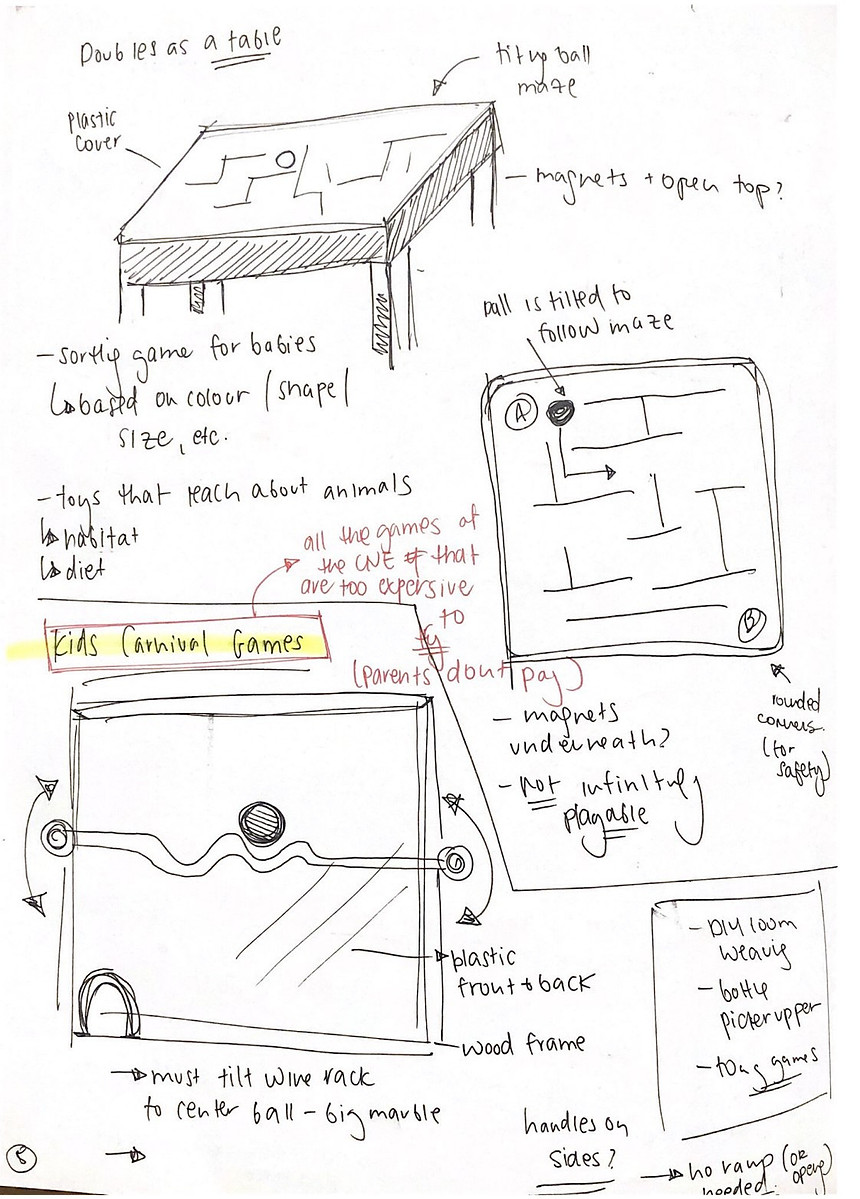 Doubles as a table
plastic
cover
ball
maze
- magnets + open top?
- sorting game for babies
↳ based on colour / shape /
size, etc.
ball is tilted to
follow maze
A
B
- toys that teach about animals
↳ habitat
↳ diet
all the games at
the CNE that
are too expensive
to
(parents dont pay)
Kids Carnival Games
rounded
corners.
(for
safety)
- magnets
underneath?
- Not infinitely
playable
plastic
front + back
wood frame
→ must tilt wire rack
to center ball - big marble
→
- DIY loom
weaving
- bottle
picker upper
games
handles on
sides?
→ no ramp (or
needed.
5